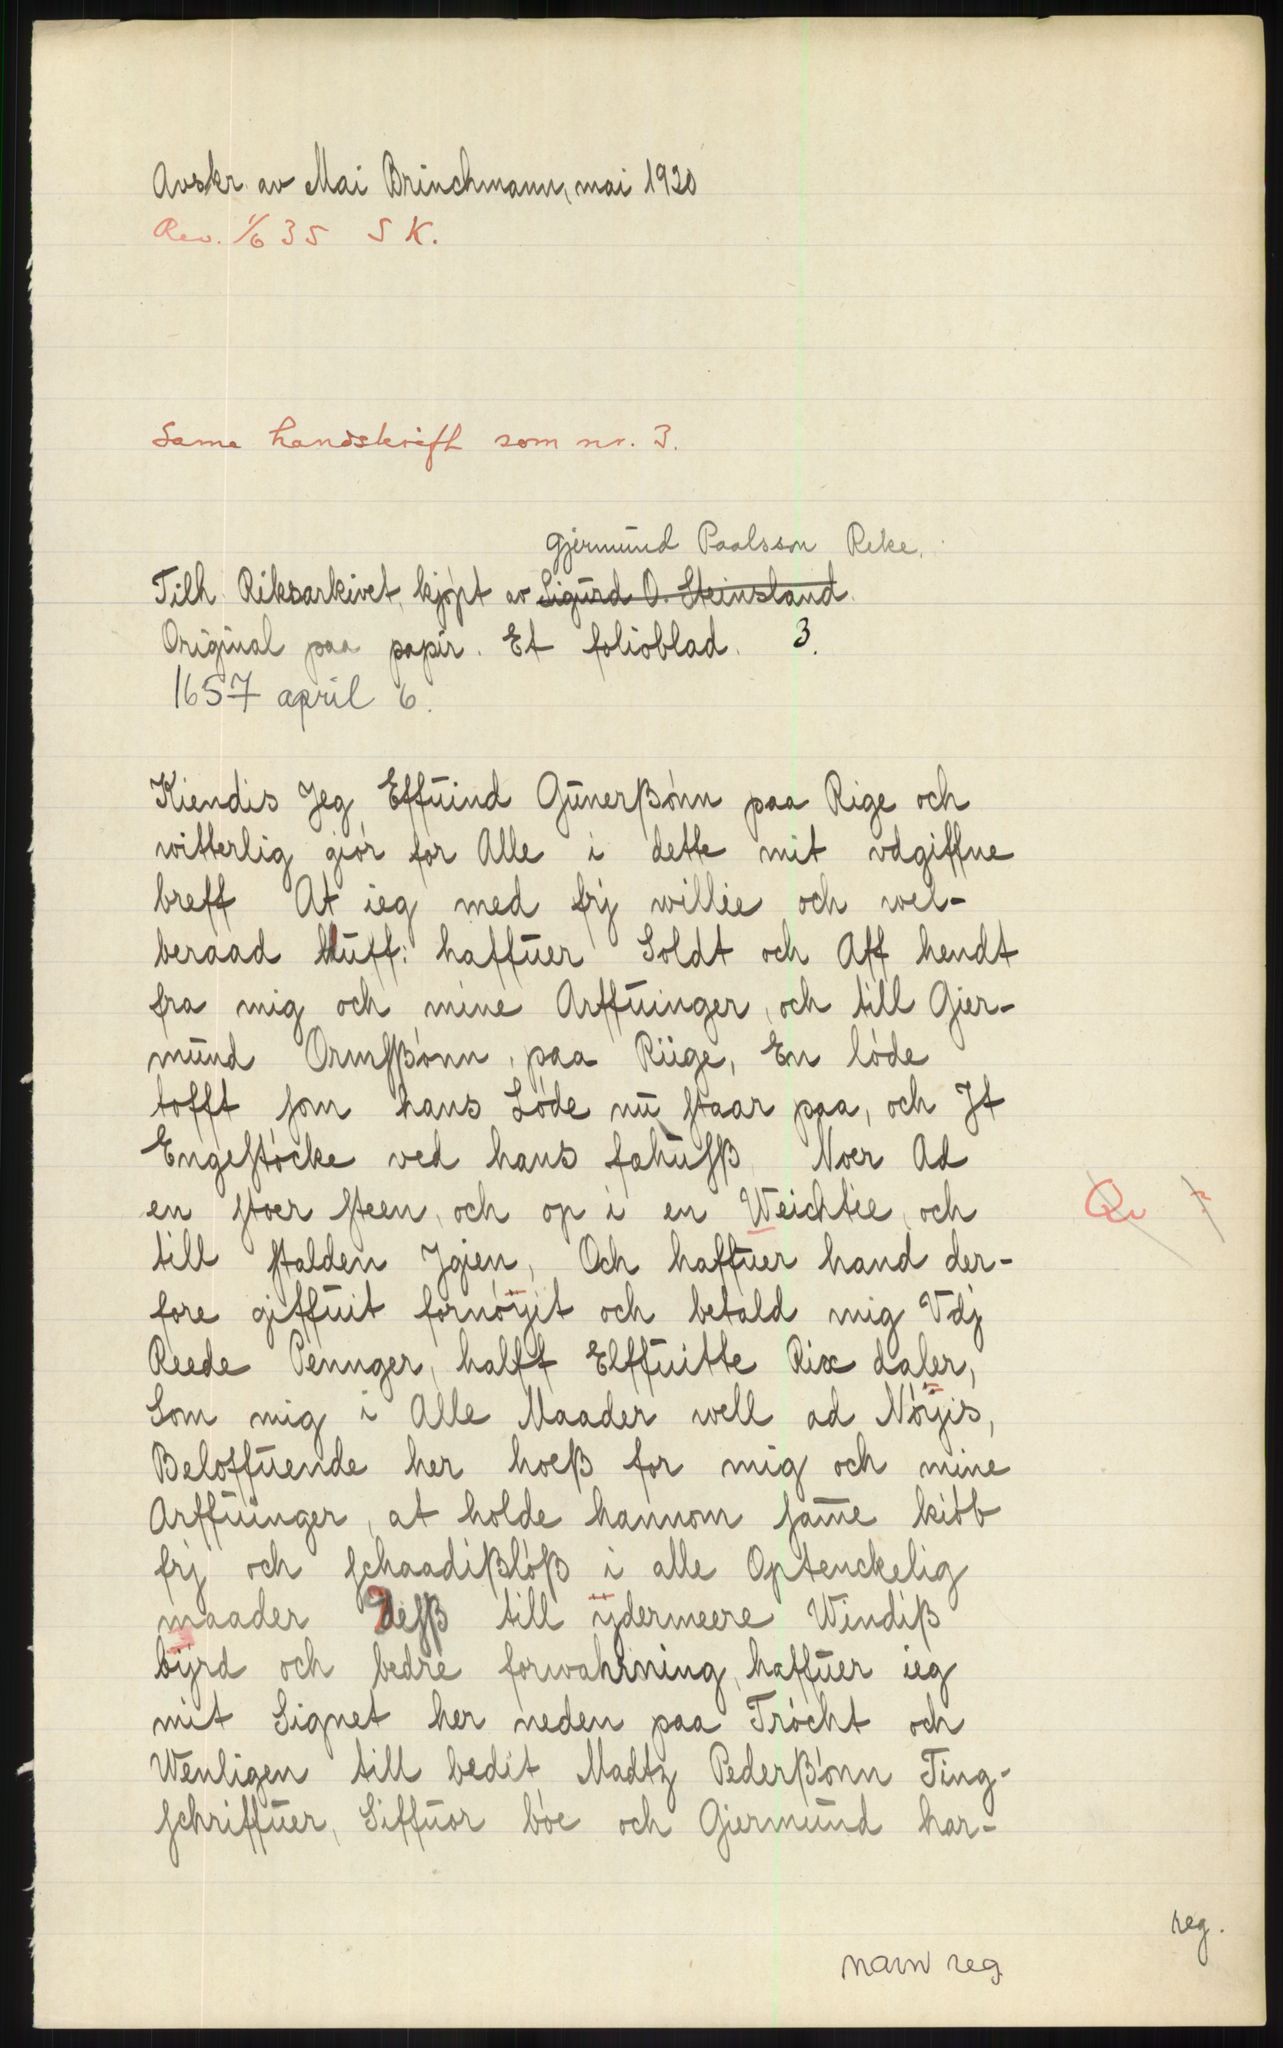 Avskr. av Mai Brinchmann, mai 1920
Rev. 1/6 35 S K.
Same handskrift som nr. 3.
Gjermund Paalsson Reke.
Tilh. Riksarkivet, kjøpt av Sigurd O. Steinsland.
Original paa papir. Et folioblad. 3.
1657 april 6.
Kiendis Jeg Effuind Gunerßönn paa Rige och
witterlig giör for Alle i dette mit vdgiffne
breff At ieg med frj willie och wel-
beraad Huff: haffuer Soldt och Aff hendt
fra mig och mine Arffuinger, och till Gier-
mund Ormſßönn, paa Riige, En löde
tofft ſom hans Löde nu ſtaar paa, och Jt
Engeſtöcke ved hans fæhuſß Noer Ad
en ſtoer ſteen, och op i en Weichtie, och
till ſtalden Jgien, Och haffuer hand der-
fore giffuit fornöÿit och betald mig Vdj
Reede Pennger, halff Elffuitte Rix daler,
Som mig i Alle Maader well ad Nöÿis,
Beloffuende her hoeß for mig och mine
Arffuinger, at holde hannom ſam̄e kiöb
frj och ſchaadißlöß i alle Optenckelig
maader Deſß till ÿdermeere Windiß
bÿrd och bedre forwahrning, haffuer ieg
mit Signet her neden paa Tröcht och
Wenligen till bedit Madtz Pederßönn Ting-
ſchriffuer, Siffuor böe och Giermund har-
reg.
navn reg